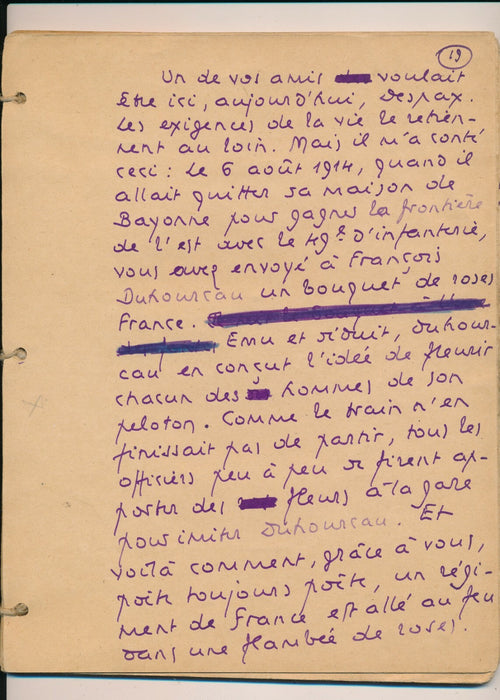 19
Un de vos amis voulait
être ici, aujourd'hui, Despax.
Les exigences de la vie le retien-
nent au loin. Mais il m'a conté
ceci : le 6 août 1914, quand il
allait quitter sa maison de
Bayonne pour gagner la frontière
de l'est avec le 49e d'infanterie,
vous avez envoyé à François
Duhourcau un bouquet de roses
France.
Emu et séduit, Duhour-
cau en conçut l'idée de fleurir
chacun des hommes de son
peloton. Comme le train n'en
finissait pas de partir, tous les
officiers peu à peu se firent ap-
porter des fleurs à la gare
pour imiter Duhourcau. Et
voilà comment, grâce à vous,
poète toujours poète, un régi-
ment de France est allé au feu
dans une flambée de roses.